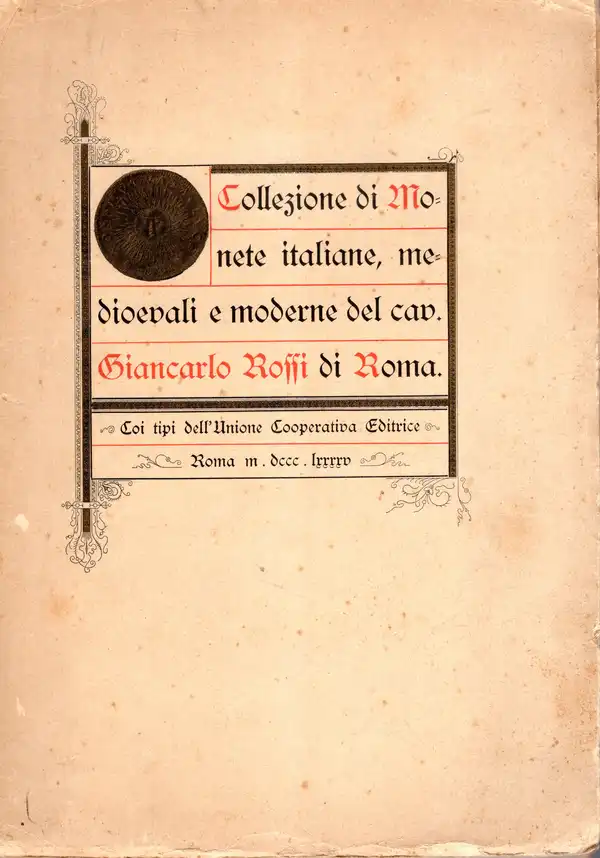 Collezione di Mo=
nete italiane, me=
dioevali e moderne del cav.
Giancarlo Rossi di Roma.
Coi tipi dell'Unione Cooperativa Editrice
Roma m . dccc . lxxxxv